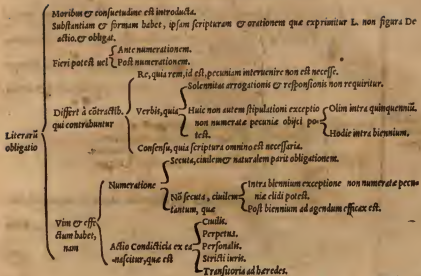 Moribus & consuetudine est introducta.
Substantiam & formam habet, ipsam scripturam & orationem quæ exprimitur L. non figura De
actio. & obligat.
Fieri potest uel
Ante numerationem.
Post numerationem.
Literarū
obligatio
Differt à cōtractib.
qui contrahuntur
Re, quia rem, id est, pecuniam interuenire non est necesse.
Verbis, quia
Solennitas arrogationis & responsionis non requiritur.
Huic non autem stipulationi exceptio
non numeratæ pecuniæ obijci po=
test.
Olim intra quinquenniū.
Hodie intra biennium.
Consensu, quia scriptura omnino est necessaria.
Vim & effe=
ctum habet,
nam
Numeratione
Secuta, ciuilem & naturalem parit obligationem.
Nō secuta, ciuilem
tantum, quæ
Intra biennium exceptione non numeratæ pecu=
niæ elidi potest.
Post biennium ad agendum efficax est.
Actio Condicticia ex ea
nascitur, quæ est
Ciuilis.
Perpetua.
Personalis.
Stricti iuris.
Transitoria ad hæredes.